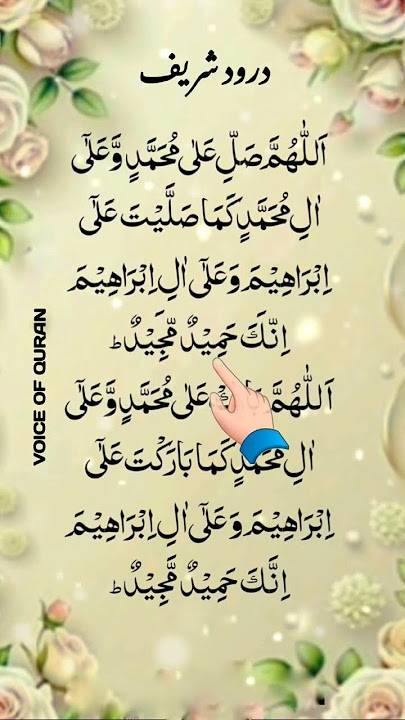 درود شریف
اَللّٰهُمَّ صَلِّ عَلٰى مُحَمَّدٍ وَّعَلٰٓى
اٰلِ مُحَمَّدٍ كَمَا صَلَّيْتَ عَلٰٓى
اِبْرَاهِيْمَ وَعَلٰٓى اٰلِ اِبْرَاهِيْمَ
اِنَّكَ حَمِيْدٌ مَّجِيْدٌ ؕ
اَللّٰهُمَّ عَلٰى مُحَمَّدٍ وَّعَلٰٓى
اٰلِ مُحَمَّدٍ كَمَا بَارَكْتَ عَلٰٓى
اِبْرَاهِيْمَ وَعَلٰٓى اٰلِ اِبْرَاهِيْمَ
اِنَّكَ حَمِيْدٌ مَّجِيْدٌ ؕ
VOICE OF QURAN